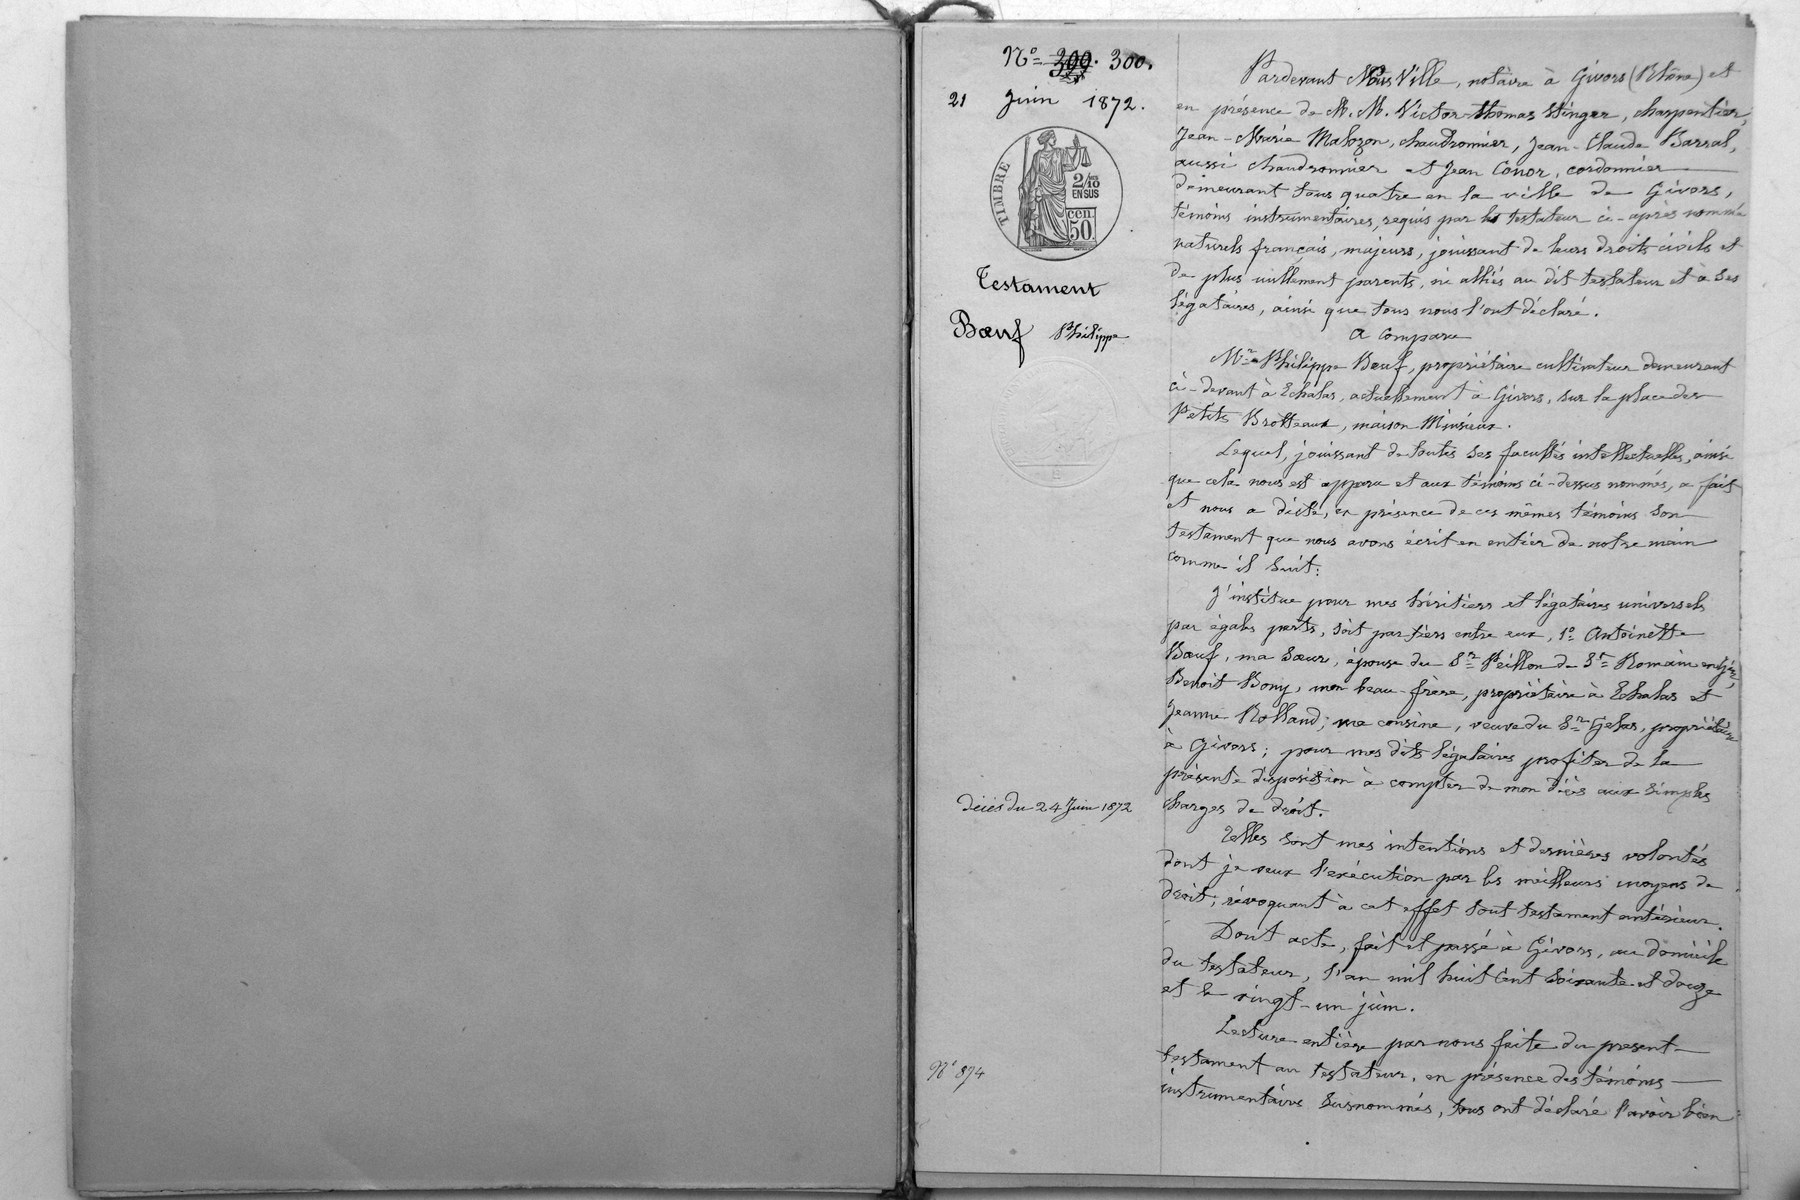 N° 300. 300.
21 Juin 1872.
TIMBRE
2/10
EN SUS
50 cen.
Testament
Bœuf Philippe
décès du 24 Juin 1872
N° 874
Pardevant Nous Ville, notaire à Givors (Rhône) et
en présence de M. M. Victor Thomas Stinger, charpentier,
Jean-Marie Malozon, chaudronnier, Jean-Claude Barral,
aussi chaudronnier et Jean Conor, cordonnier
demeurant tous quatre en la ville de Givors,
témoins instrumentaires, requis par le testateur ci-après nommé
naturels français, majeurs, jouissant de leurs droits civils et
de plus nullement parents, ni alliés au dit testateur et à ses
légataires, ainsi que tous nous l'ont déclaré.
A comparu
Mr Philippe Bœuf, propriétaire cultivateur demeurant
ci-devant à Echalas, actuellement à Givors, sur la place des
Petits Brotteaux, maison Minsieux.
Lequel, jouissant de toutes ses facultés intellectuelles, ainsi
que cela nous est apparu et aux témoins ci-dessus nommés, a fait
et nous a dicté, en présence de ces mêmes témoins son
testament que nous avons écrit en entier de notre main
comme il suit:
J'institue pour mes héritiers et légataires universels
par égales parts, soit par tiers entre eux, 1° Antoinette
Bœuf, ma sœur, épouse du Sr Peillon de St Romain en Gier,
Benoit Bony, mon beau-frère, propriétaire à Echalas et
Jeanne Rolland, ma cousine, veuve du Sr Gelas, propriétaire
à Givors; pour mes dits légataires profiter de la
présente disposition à compter de mon décès aux simples
charges de droit.
Telles sont mes intentions et dernières volontés
dont je veux l'exécution par les meilleurs moyens de
droit; révoquant à cet effet tout testament antérieur.
Dont acte, fait et passé à Givors, au domicile
du testateur, l'an mil huit cent soixante et douze
et le vingt-un juin.
Lecture entière par nous faite du présent
testament au testateur, en présence des témoins
instrumentaires susnommés, tous ont déclaré l'avoir bien